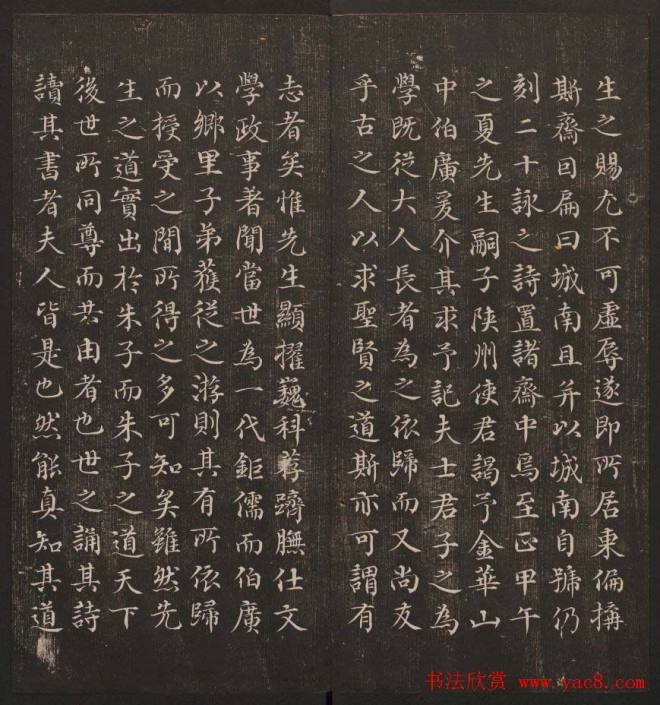 生之賜尤不可虛辱遂即所居東偏搆
斯齋因扁曰城南且并以城南自號仍
刻二十詠之詩置諸齋中焉至正甲午
之夏先生嗣子陝州使君謁予金華山
中伯廣爰介其求予記夫士君子之為
學既從大人長者為之依歸而又尚友
乎古之人以求聖賢之道斯亦可謂有
志者矣惟先生顯擢巍科荐躋膴仕文
學政事著聞當世為一代鉅儒而伯廣
以鄉里子弟獲從之游則其有所依歸
而授受之間所得之多可知矣雖然先
生之道實出於朱子而朱子之道天下
後世所同尊而共由者也世之誦其詩
讀其書者夫人皆是也然能真知其道
书法欣赏 www.yac8.com